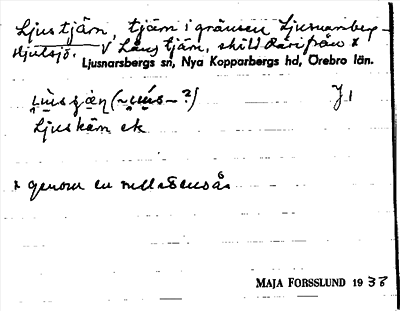 Ljustjärn, tjärn i gränsen Ljusnarsberg-
Hjulsjö. V Lång tjärn, skild därifrån x
Ljusnarsbergs sn, Nya Kopparbergs hd, Örebro län.
J 1
Ljuskärn ek
x genom en mellansås
MAJA FORSSLUND 1938